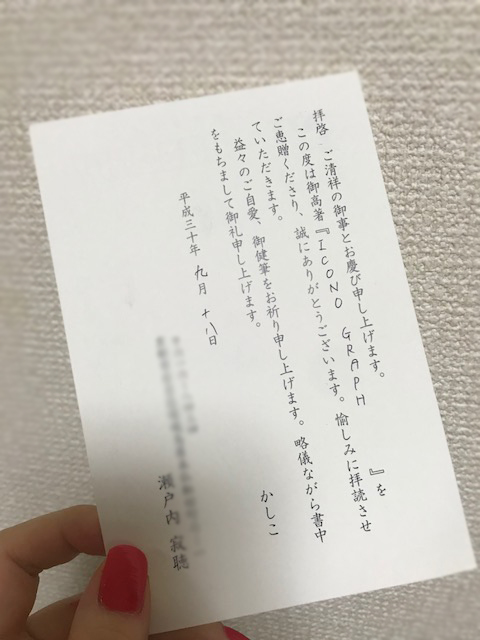 拝啓　ご清祥の御事とお慶び申し上げます。
この度は御高著『ICONO GRAPH　』を
ご恵贈くださり、誠にありがとうございます。愉しみに拝読させ
ていただきます。
益々のご自愛、御健筆をお祈り申し上げます。略儀ながら書中
をもちまして御礼申し上げます。
かしこ
平成三十年 九月 十八日
瀬戸内 寂聴